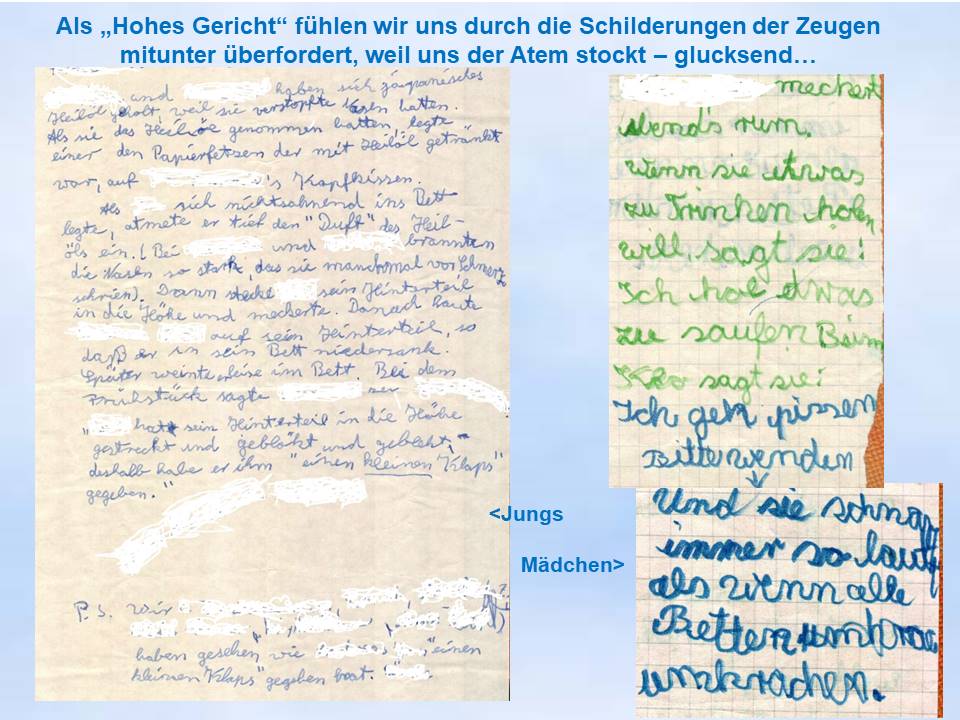 Als „Hohes Gericht“ fühlen wir uns durch die Schilderungen der Zeugen
mitunter überfordert, weil uns der Atem stockt – glucksend…
und haben sich jaupanisches
Heilöl geholt, weil sie verstopfte Nasen hatten.
Als sie das Heilöl genommen hatten, legte
einer den Papierfetzen der mit Heilöl getränkt
war, auf 's Kopfkissen.
Als sich nichtsahnend ins Bett
legte, atmete er tief den "Duft" des Heil-
öls ein. (Bei und brannten
die Nasen so stark, das sie manchmal vor Schmerz
schrien). Dann steckte sein Hinterteil
in die Höhe und meckerte. Danach haute
auf sein Hinterteil, so
daß er in sein Bett niedersank.
Später weinte er leise im Bett. Bei dem
Frühstück sagte
" hat sein Hinterteil in die Höhe
gestreckt und geblökt und geblökt,
deshalb habe er ihm "einen kleinen Klaps"
gegeben."
P.S. Wir
haben gesehen, wie "einen
kleinen Klaps" gegeben hat.
<Jungs
Mädchen>
meckert
abends rum.
Wenn sie etwas
zu Trinken holen
will, sagt sie:
Ich hol etwas
zu saufen Beim
Klo sagt sie:
Ich geh pissen
Bitte wenden
Und sie schnar
immer so laut
als wenn alle
Betten umkrac
umkrachen.